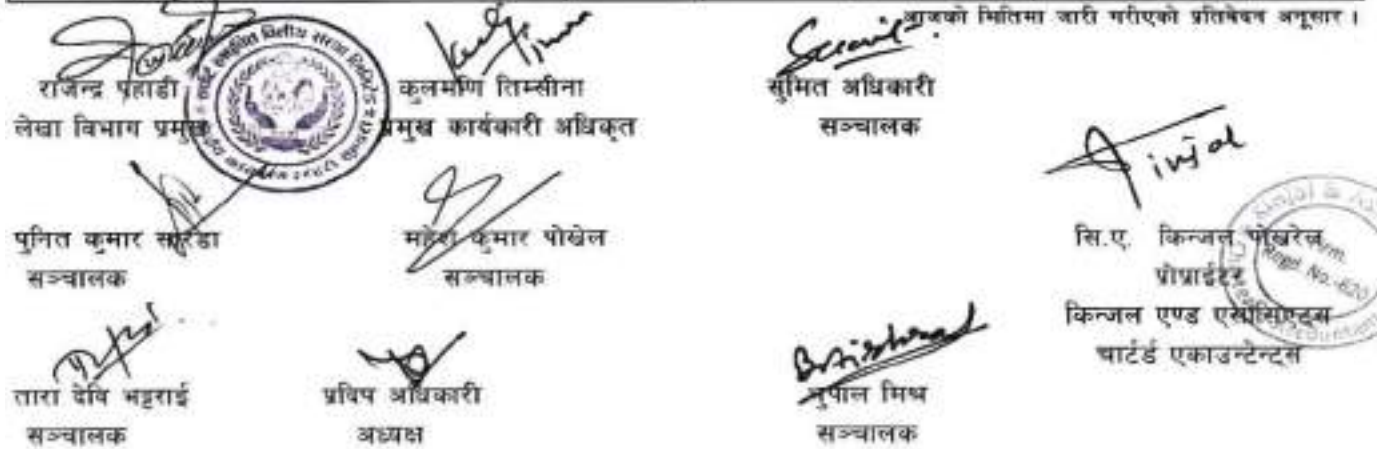 आजको मितिमा जारी गरीएको प्रतिवेदन अनूसार ।
राजेन्द्र पहाडी
लेखा विभाग प्रमुख
कुलमणि तिम्सीना
प्रमुख कार्यकारी अधिकृत
सुमित अधिकारी
सञ्चालक
पुनित कुमार सारडा
सञ्चालक
महेश कुमार पोखेल
सञ्चालक
injal
सि.ए. किन्जल पोखरेल
प्रोप्राईटर
किन्जल एण्ड एसोसिएट्स
चार्टर्ड एकाउन्टेन्ट्स
Kinjal &
Firm.
Regd. No.-620
तारा देवि भट्टराई
सञ्चालक
प्रदिप अधिकारी
अध्यक्ष
भुपाल मिश्र
सञ्चालक